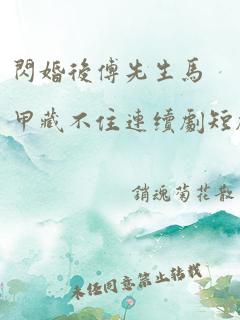 閃婚後傅先生馬
甲藏不住連續劇短
銷魂菊花散
未經同意禁止轉載